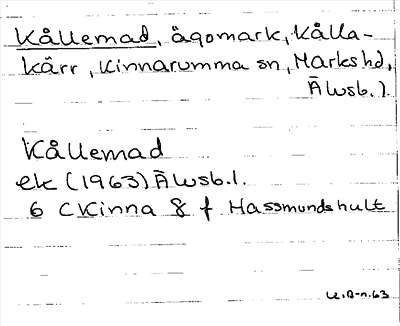 Kållemad, ägomark, Kålla-
kärr, Kinnarumma sn, Marks hd,
Älvsb. l.
Kållemad
ek (1963) Älvsb. l.
6 C Kinna 8 f Hassmundshult